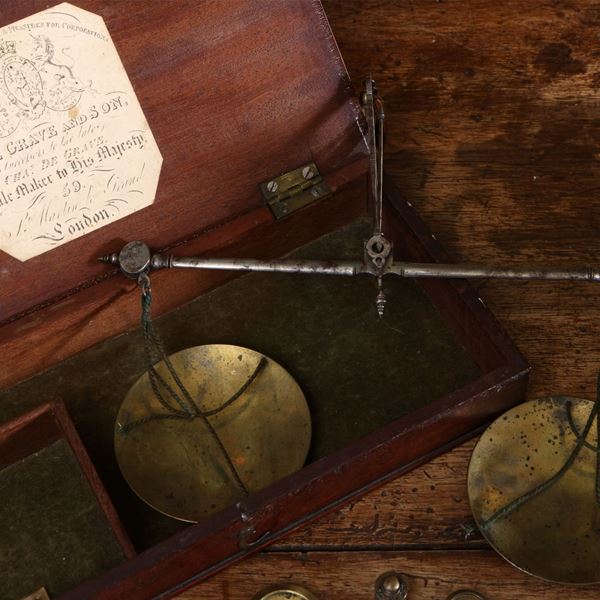 & MEASURES FOR CORPORATION
GRAVE AND SON,
to the late
CHAS. DE GRAVE,
Maker to His Majesty,
59.
St. Martin's le Grand
London.